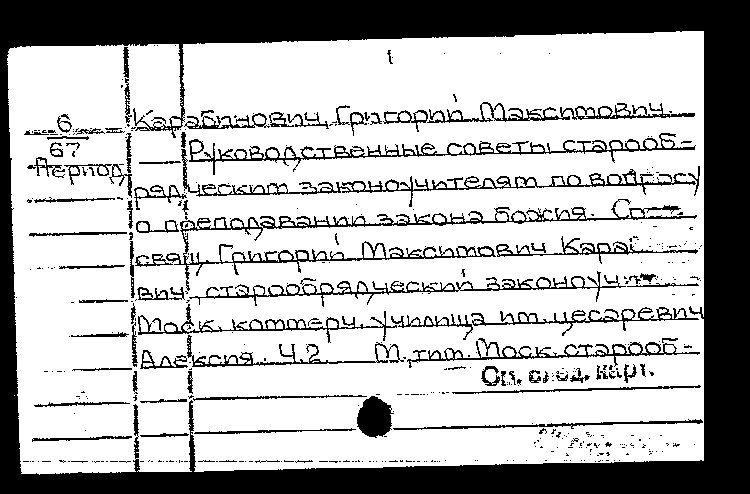 6
67
Период,
Карабинович, Григорий Максимович.
Руководственные советы старооб-
ряд,ческим законоучителям по вопросу
о преподавании закона божия.
свящ. Григорий Максимович
вич, старообрядческий
Моск. коммерч. училища им. цесаревич
Алексия. Ч.2. М., тип. Моск. старооб-
См. след. карт.